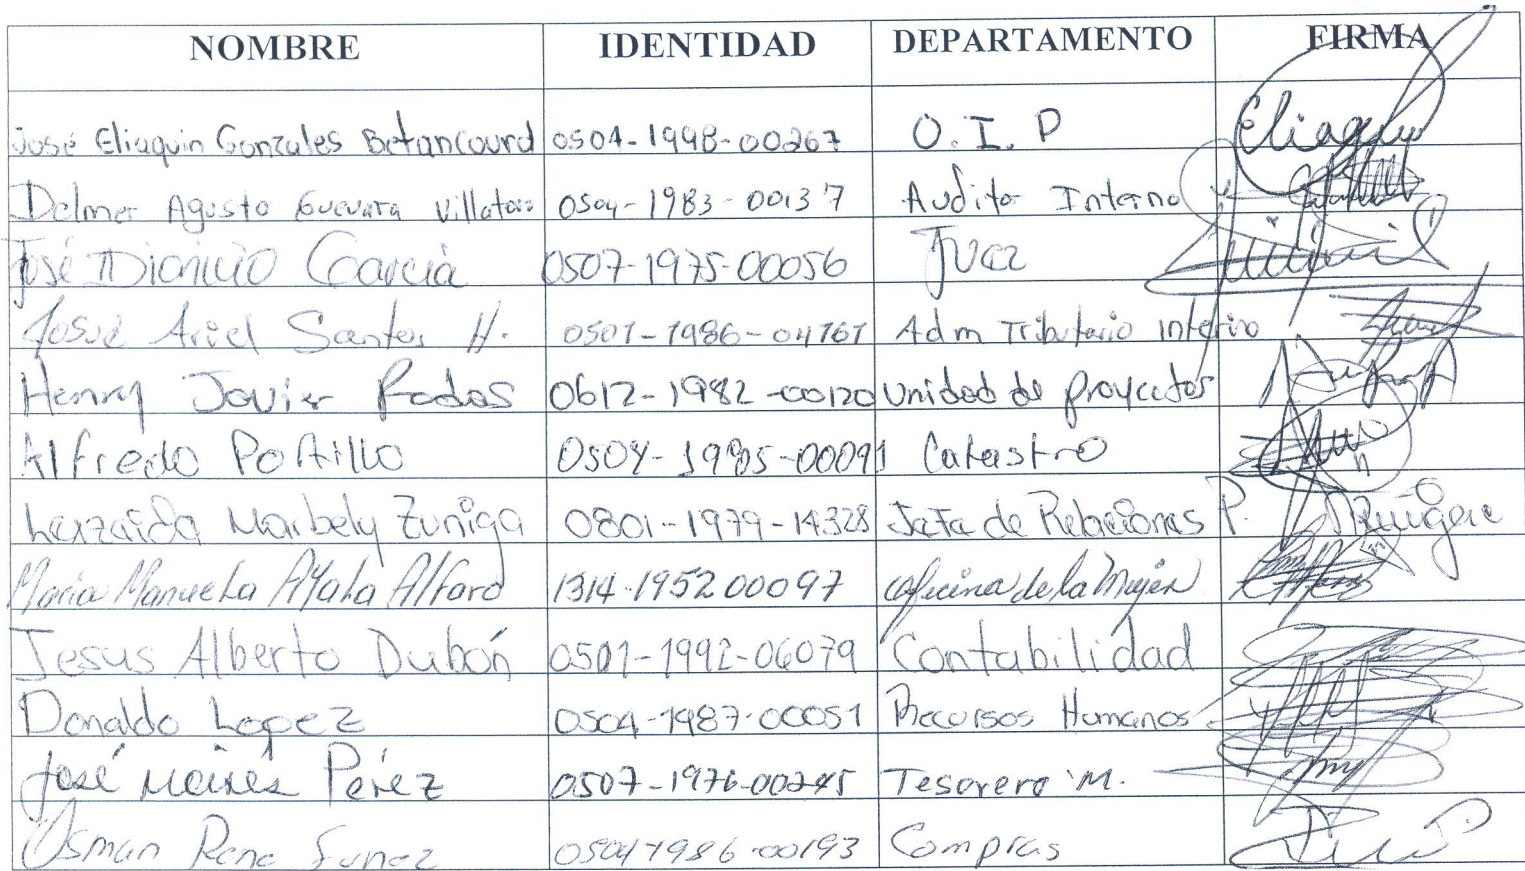 NOMBRE IDENTIDAD DEPARTAMENTO FIRMA
José Eliaquin Gonzales Betancourd 0504-1998-00267 O.I.P Eliaquin
Delmer Agusto Guevara Villatoro 0504-1983-00137 Auditor Interno
José Dionicio Garcia 0507-1975-00056 Juez
Josué Ariel Santos H. 0501-1986-04761 Adm Tributario interino
Henry Javier Rodas 0612-1982-00120 Unidad de proyectos
Alfredo Portillo 0504-1985-00091 Catastro
Marbely Zuniga 0801-1979-14328 Jefa de Relaciones P.
Maria Manuela Ayala Alfaro 1314-1952 00097 oficina de la Mujer
Jesus Alberto Dubón 0501-1992-06079 Contabilidad
Donaldo Lopez 0504-1987-00051 Recursos Humanos
José Moisés Pérez 0507-1976-00245 Tesorero M.
Osman Rene Funez 0504 1986-00193 Compras